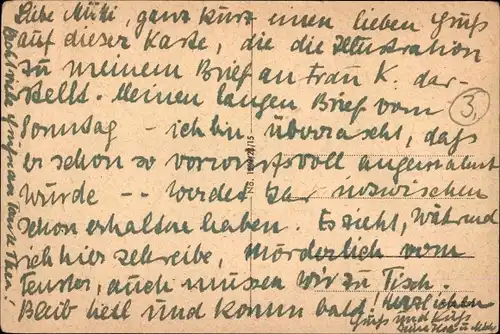 Liebe Mutti, ganz kurz einen lieben Gruß
auf dieser Karte, die die Illustration
zu meinem Brief an Frau K. dar-
stellt. Meinen langen Brief vom
Sonntag - ich bin überrascht, daß
er schon so vorwurfsvoll angemahnt
wurde -- werdet Ihr inzwischen
schon erhalten haben. Es zieht, während
ich hier schreibe, mörderlich vom
Fenster, auch müssen wir zu Tisch.
Bleib heil und komm bald! Herzlichen
Gruß und Kuß
3.
Recht viele Grüße an Tante Thea!